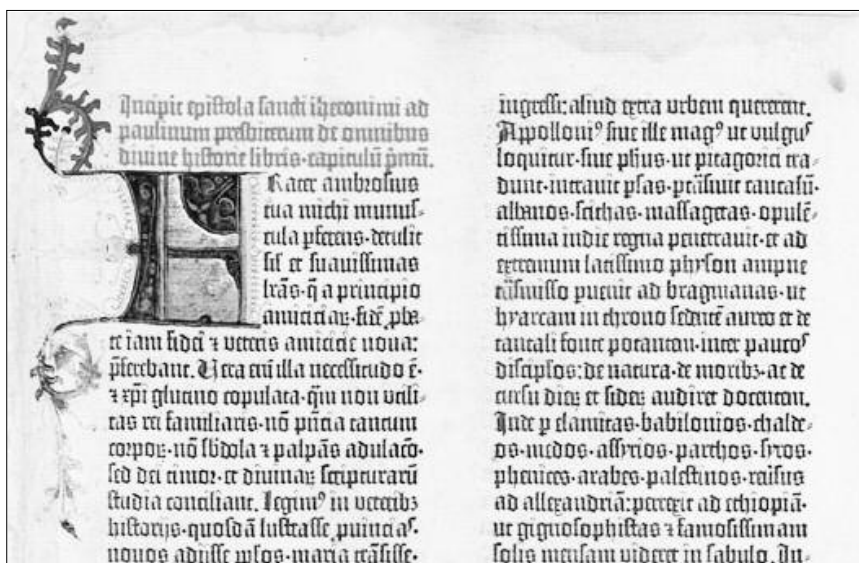 Incipit epistola sancti iheronimi ad
paulinum presbiterum de omnibus
divine historie libris·capitulū p̄mū.
Frater ambrosius
tua michi munus-
cula ꝑferens·detulit
sīl et suavissimas
lr̄as·q̄ a principio
amiciciaꝝ·fidē ꝓba-
te iam fidei ⁊ veteris amicicie nova:
p̄ferebant. Vera enī illa necessitudo ē·
⁊ xp̄i glutino copulata·qm̄ non utili-
tas rei familiaris·nō p̄ncia tantum
corpoꝝ·nō s̄bdola ⁊ palpās adulacō·
sed dei timor·et divinaꝝ scripturarū
studia conciliant. Legimꝰ in veteribꝫ
historijs·quosdā lustrasse ꝓvinciaˢ·
novos adijsse pp̄los·maria trāsisse·
ingressi: aliud extra urbem quererent.
Appolloniꝰ sive ille magꝰ ut vulguˢ
loquitur·sive ph̄us·ut pitagorici tra-
dunt·intravit ꝑsas·ꝑtrāsivit caucasū·
albanos·scithas·massagetas·opulē-
tissima indie regna penetravit·et ad
extremum latissimo physon ampne
trāsmisso ꝑvenit ad bragmanas·ut
hyarcam in throno sedentē aureo et de
tantali fonte potantem·inter paucoˢ
discip̄los: de natura·de moribꝫ·ac de
cursu dieꝝ et sideꝝ audiret docentem.
Inde ꝑ elamitas·babilonios·chalde-
os·medos·assyrios·parthos·syros·
phenices·arabes·palestinos·reversus
ad allexandriā: perrexit ad ethiopiā·
ut gignosophistas ⁊ famosissimam
solis mensam videret in sabulo. In-